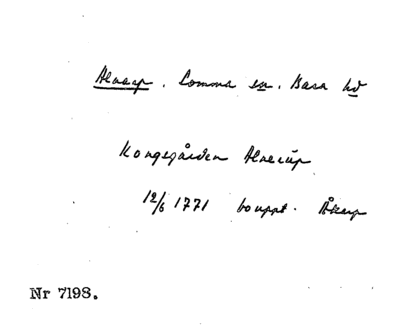 Alnarp. Lomma sn. Bara hd
Kongsgården Alnarup
12/6 1771 bouppt. Åkarp
Nr 7198.